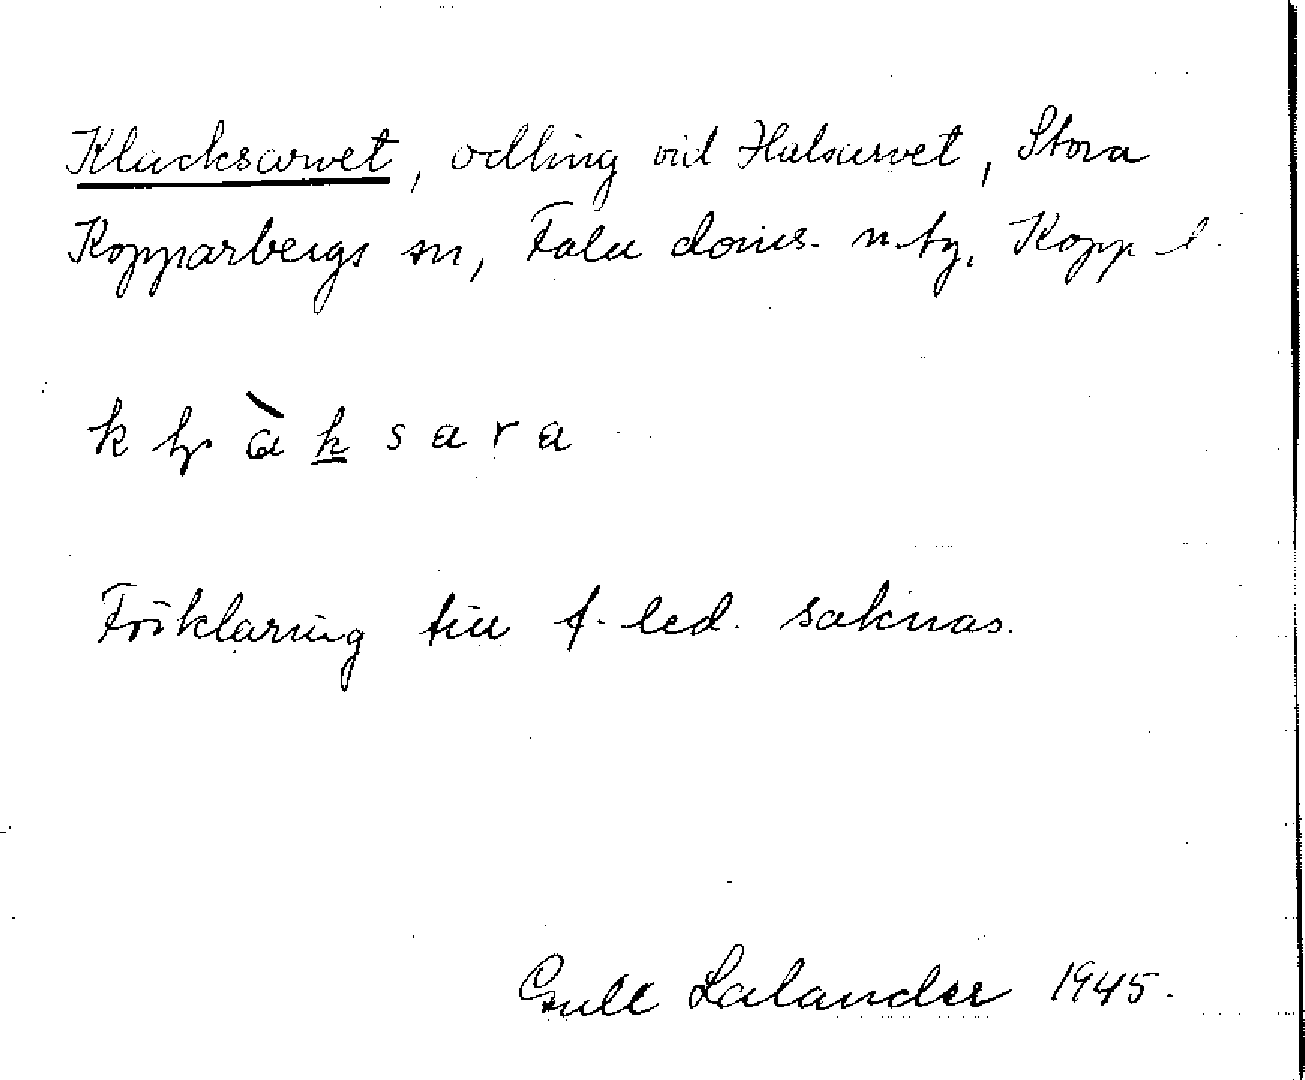 Klacksarvet, odling vid Halsarvet, Stora
Kopparbergs sn, Falu doms. n. tg, Kopp l.
k ḷ à k s a r a
Förklaring till f. led. saknas.
Gull Lalander 1945.